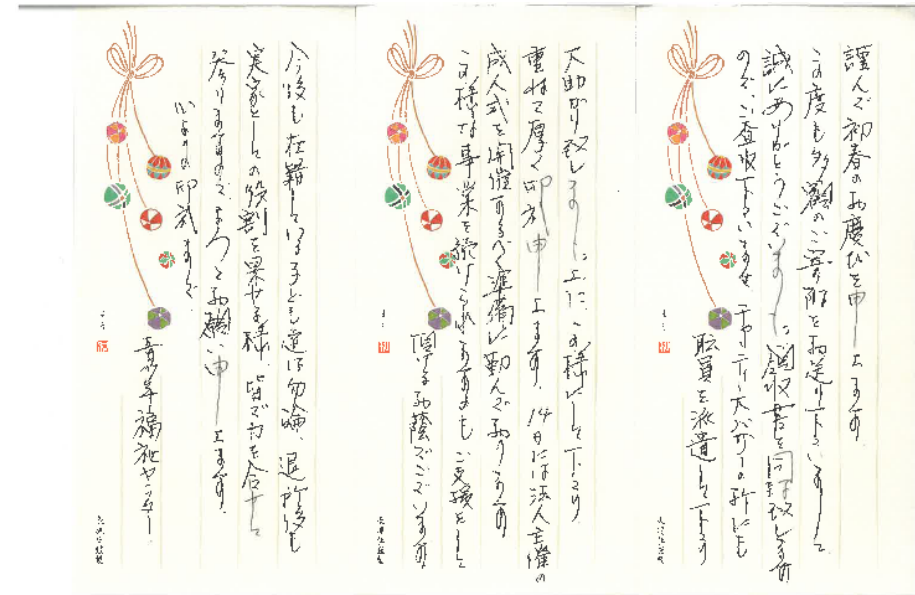 謹んで初春のお慶びを申し上ます。
この度も多額のご寄附をお送り下さいまして
誠にありがとうございました。領収書を同封致します
ので、ご査収下さいませ。
職員を派遣して下さり
大助かり致しました上に、この様にして下さり
重ねて厚く御礼申し上ます。14日には法人主催の
成人式を開催するべく準備に勤んでおります。
この様な事業を続けられますのもご支援をして
頂けるお蔭でございます。
今後も在籍している子ども達は勿論、退所後も
実家としての役割を果せる様、皆で力を合せて
参りますので、よろしくお願い申し上ます。
心よりの御礼まで
福祉センター